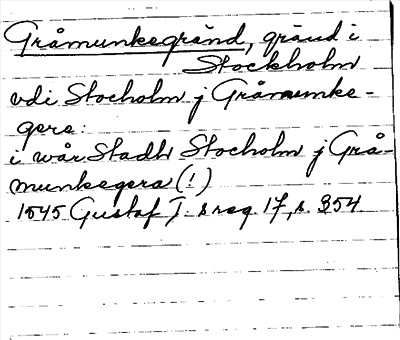 Gråmunkegränd, gränd i
Stockholm
vdi Stocholm j Gråmunke-
gere:
i wår Stadh Stocholm j Grå-
munkegera (!)
1545 Gustaf I. s reg. 17, s. 354